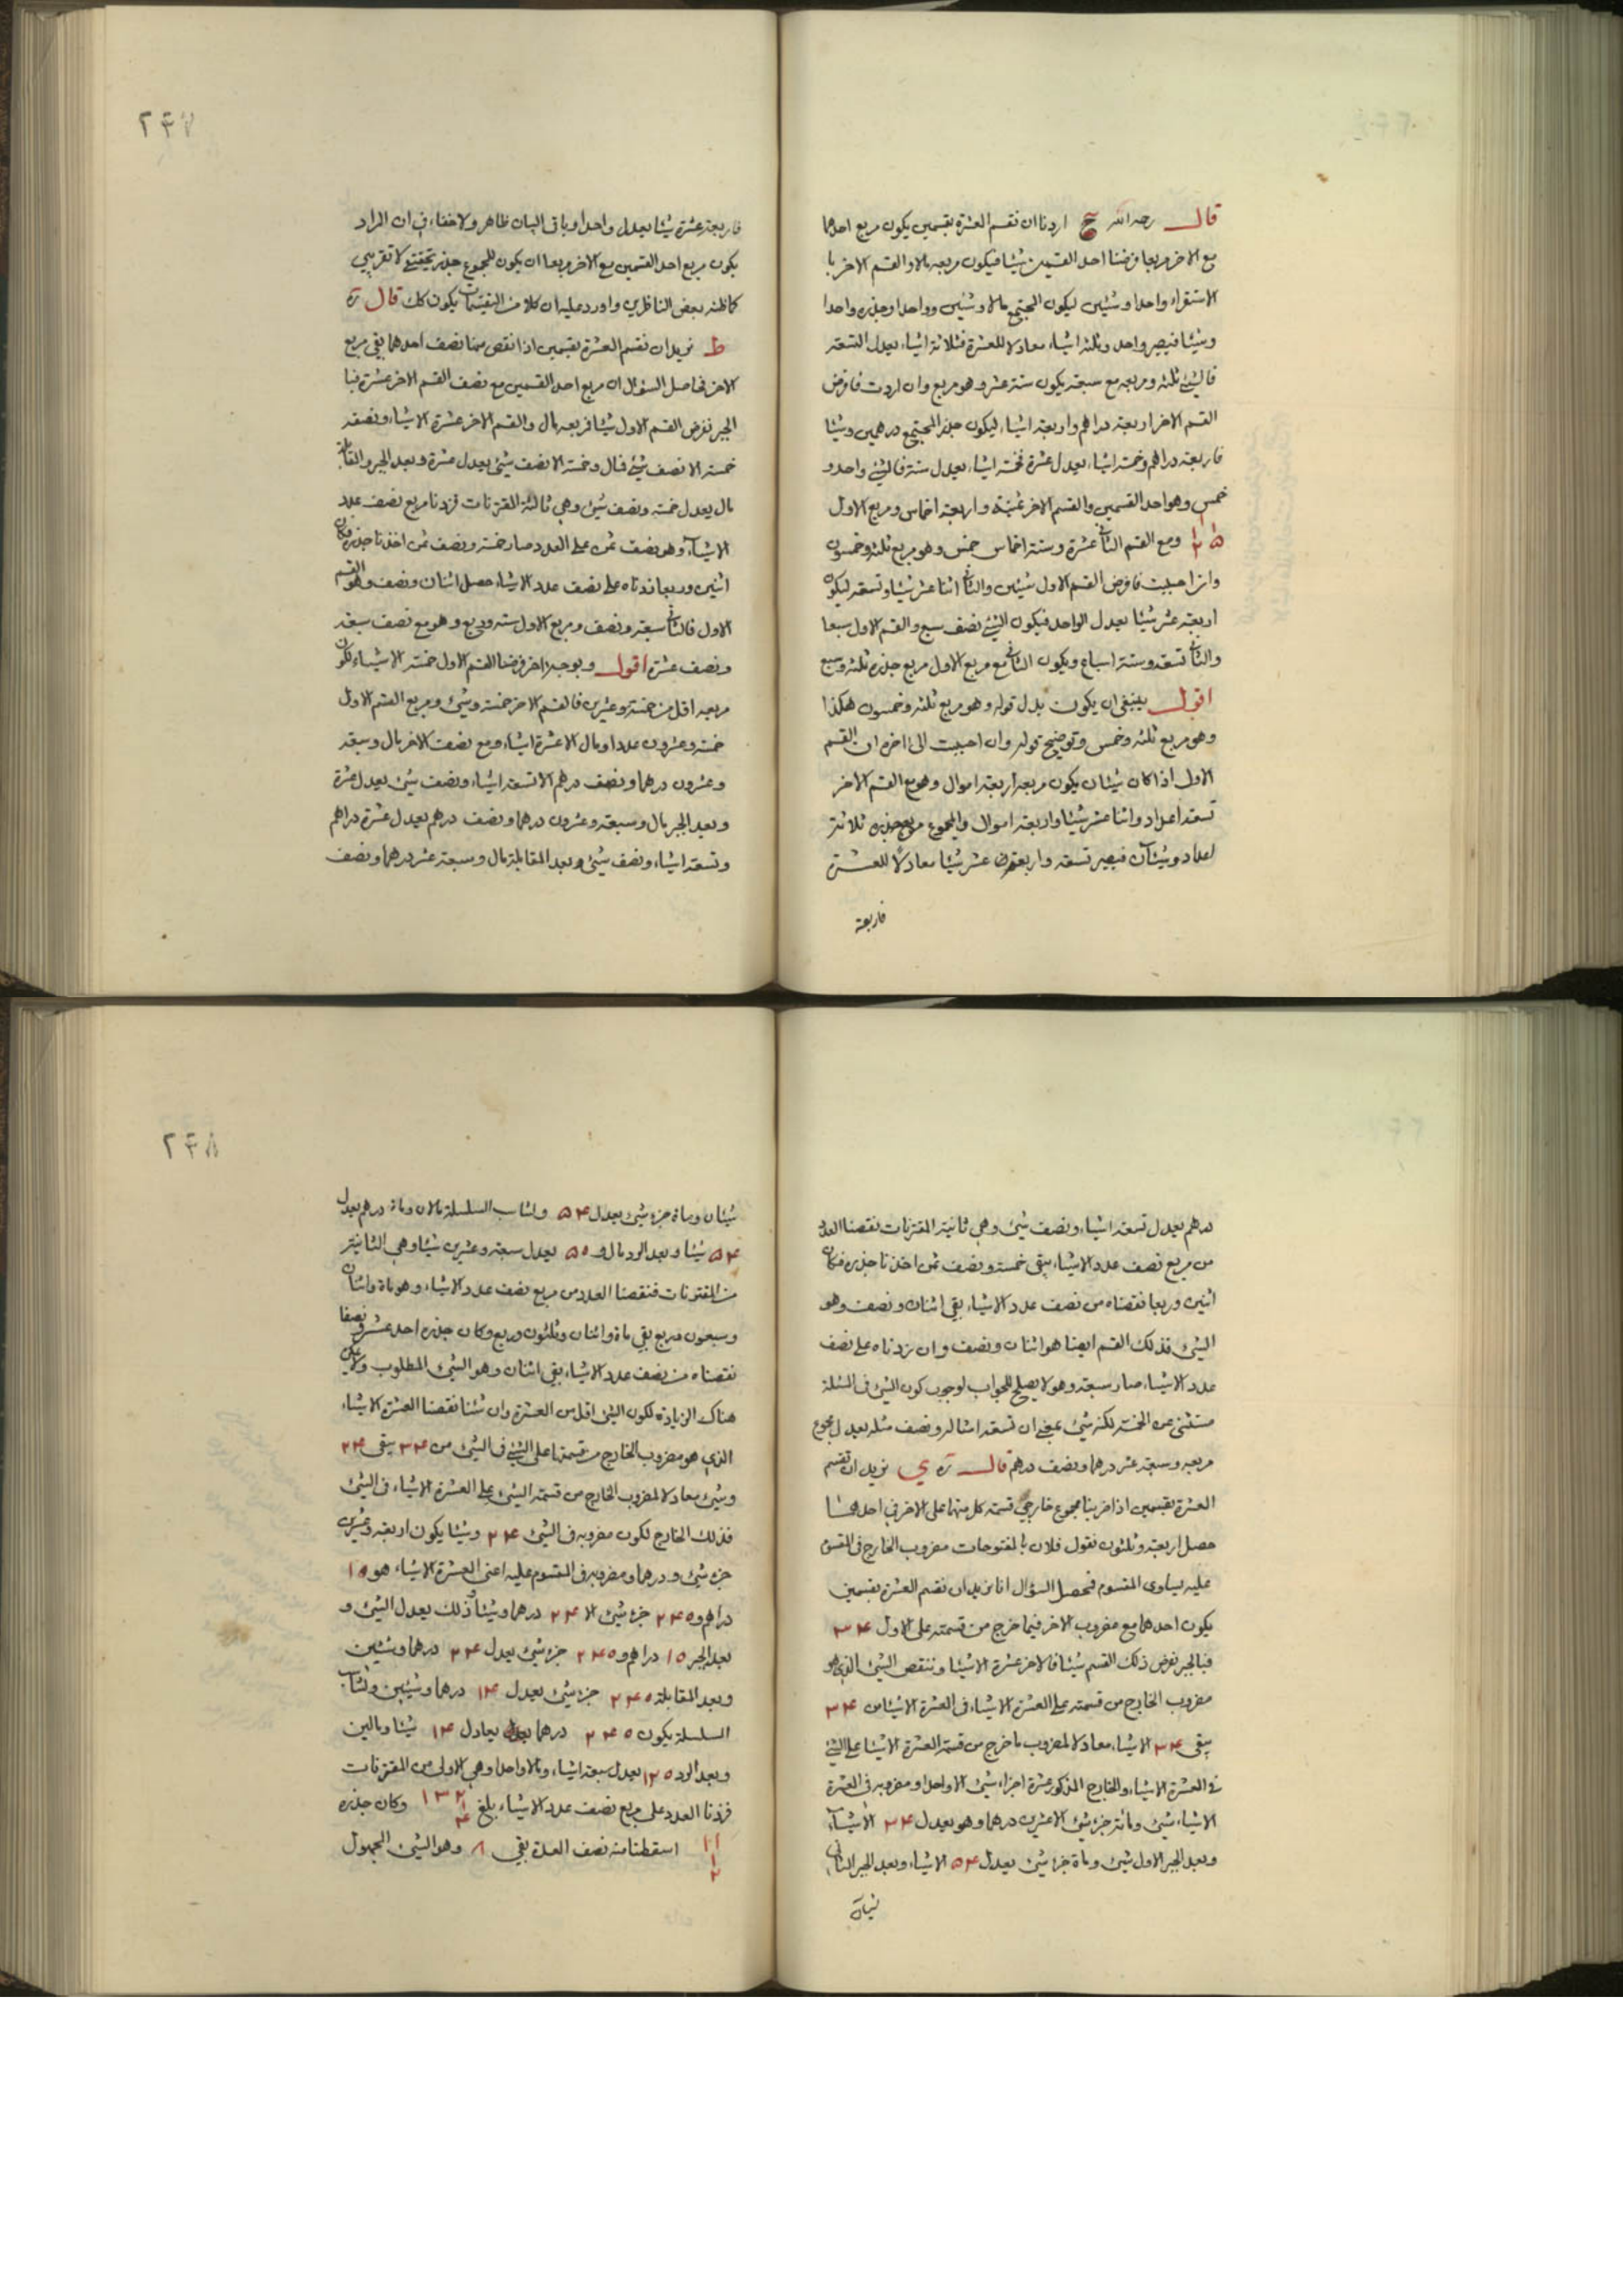 قال رحمه الله ح اردنا ان نقسم العشرة بقسمين يكون مربع احدهما
مع الاخر مربعا فرضنا احد القسمين شيئا فيكون مربعه مالا والقسم الاخر با
الاستقراء واحدا وشيئين ليكون المجتمع مالا وشيئين وواحدا وجذره واحدا
وشيئا فيصير واحد وثلثة اشياء معادلا للعشرة فثلاثة اشياء يعدل التسعة
فالشئ ثلثة ومربعه مع سبعة يكون ستة عشر وهو مربع وان اردت فافرض
القسم الاخر اربعة دراهم واربعة اشياء ليكون جذر المجتمع درهمين وشيئا
فاربعة دراهم وخمسة اشياء يعدل عشرة فخمسة اشياء يعدل ستة فالشئ واحد و
خمس وهو احد القسمين والقسم الاخر ثمنية واربعة اخماس ومربع الاول
ومع القسم الثاني عشرة وستة اخماس خمس وهو مربع ثلثة وخمسون
وان احببت فافرض القسم الاول شيئين والثاني اثنا عشر شيئا وتسعة ليكون
اربعة عشر شيئا يعدل الواحد فيكون الشئ نصف سبع والقسم الاول سبعا
والثاني تسعة وستة اسباع ويكون الثاني مع مربع الاول مربع جذره ثلثة وسبع
اقول ينبغي ان يكون بدل قوله وهو مربع ثلثة وخمسون هكذا
وهو مربع ثلثة وخمس وتوضيح قوله وان احببت الى اخره ان القسم
الاول اذا كان شيئان يكون مربعه اربعة اموال وهو مع القسم الاخر
تسعة اعداد واثنا عشر شيئا واربعة اموال والمجموع مربع جذره ثلاثة
اعداد وشيئان فيصير تسعة واربعة عشر شيئا معادلا للعشرة
فاربعة
٢٤٧
فاربعة عشرة شيئا يعدل واحدا وباقي البيان ظاهر ولا خفاء في ان المراد
بكون مربع احد القسمين مع الاخر مربعا ان يكون للمجموع جذر تحقيقي لا تقريبي
كما ظنه بعض الناظرين واورد عليه ان كلا من التقسيمات يكون كك قال ره
ط نريد ان نقسم العشرة بقسمين اذا نقص منها نصف احدهما بقي مربع
الاخر فحاصل السؤال ان مربع احد القسمين مع نصف القسم الاخر عشرة فبا
الجبر نفرض القسم الاول شيئا فمربعه مال والقسم الاخر عشرة الا شيئا ونصفه
خمسة الا نصف شئ فمال وخمسة الا نصف شئ يعدل عشرة وبعد الجبر والمقابلة
مال يعدل خمسة ونصف شئ وهي ثالثة المقترنات فزدنا مربع نصف عدد
الاشياء وهو نصف ثمن على العدد صار خمسة ونصف ثمن اخذنا جذره فكان
اثنين وربعا زدناه على نصف عدد الاشياء حصل اثنان ونصف وهو القسم
الاول فالثاني سبعة ونصف ومربع الاول ستة وربع وهو مع نصف سبعة
ونصف عشرة اقول وبوجه اخر فرضنا القسم الاول خمسة الا شيئا لكون
مربعه اقل من خمسة وعشرين فالقسم الاخر خمسة وشئ ومربع القسم الاول
خمسة وعشرون عددا ومال الا عشرة اشياء ومع نصف الاخر مال وسبعة
وعشرون درهما ونصف درهم الا تسعة اشياء ونصف شئ يعدل عشرة
وبعد الجبر مال وسبعة وعشرون درهما ونصف درهم يعدل عشرة دراهم
وتسعة اشياء ونصف شئ وبعد المقابلة مال وسبعة عشر درهما ونصف
درهم يعدل تسعة اشياء ونصف شئ وهي ثانية المقترنات نقصنا العدد
من مربع نصف عدد الاشياء بقي خمسة ونصف ثمن اخذنا جذره فكان
اثنين وربعا نقصناه من نصف عدد الاشياء بقي اثنان ونصف وهو
الشئ فذلك القسم ايضا هو اثنان ونصف وان زدناه على نصف
عدد الاشياء صار سبعة وهو لا يصلح للجواب لوجوب كون الشئ في المسئلة
مستثنى من الخمسة لكنه شئ بمعنى ان تسعة امثاله ونصف مثله يعدل مجموع
مربعه وسبعة عشر درهما ونصف درهم قال ره ي نريد ان نقسم
العشرة بقسمين اذا ضربنا مجموع خارجي قسمة كل منهما على الاخر في احدهما
حصل اربعة وثلثون نقول فلان المفتوحات مضروب الخارج في المقسوم
عليه يساوي المقسوم فمحصل السؤال انا نريد ان نقسم العشرة بقسمين
يكون احدهما مع مضروب الاخر فيما خرج من قسمته على الاول ٣۴
فبالجبر نفرض ذلك القسم شيئا فالاخر عشرة الا شيئا وننقص الشئ الذي هو
مضروب الخارج من قسمته على العشرة الا شيئا في العشرة الا شيئا من ٣۴
يبقى ٣۴ الا شيئا معادلا لمضروب ما خرج من قسمة العشرة الا شيئا على الشئ
في العشرة الا شيئا والخارج المذكور عشرة اجزاء شئ الا واحدا ومضروبه في العشرة
الا شيئا شئ ومائة جزء شئ الا عشرين درهما وهو يعدل ٣۴ الا شيئا
وبعد الجبر الاول شئ ومائة جزء شئ يعدل ۵۴ الا شيئا وبعد الجبر الثاني
شيئان
٢٤٨
شيئان ومائة جزء شئ يعدل ۵۴ ولتناسب السلسلة مالان ومائة درهم يعدل
۵۴ شيئا وبعد الرد مال و ۵۰ يعدل سبعة وعشرين شيئا وهي الثانية
من المقترنات فنقصنا العدد من مربع نصف عدد الاشياء وهو مائة واثنان
وسبعون وربع بقي مائة واثنان وثلثون وربع وكان جذره احد عشر ونصفا
نقصناه من نصف عدد الاشياء بقي اثنان وهو الشئ المطلوب ولا يمكن
هناك الزيادة لكون الشئ اقل من العشرة وان شئنا نقصنا العشرة الا شيئا
الذي هو مضروب الخارج من قسمتها على الشئ في الشئ من ٣۴ يبقى ٢۴
وشئ معادلا لمضروب الخارج من قسمة الشئ على العشرة الا شيئا في الشئ
فذلك الخارج لكون مضروبه في الشئ ٢۴ وشيئا يكون اربعة وعشرين
جزء شئ ودرهما ومضروبه في المقسوم عليه اعني العشرة الا شيئا هو ١٠
دراهم و ٢۴٠ جزء شئ الا ٢۴ درهما وشيئا وذلك يعدل الشئ و
بعد الجبر ١٠ دراهم و ٢۴٠ جزء شئ يعدل ٢۴ درهما وشيئين
وبعد المقابلة ٢۴٠ جزء شئ يعدل ١۴ درهما وشيئين ولتناسب
السلسلة يكون ٢۴٠ درهما يعادل ١۴ شيئا ومالين
وبعد الرد ١٢٠ يعدل سبعة اشياء ومالا واحدا وهي الاولى من المقترنات
فزدنا العدد على مربع نصف عدد الاشياء بلغ ١٣٢ ١ ۴ وكان جذره
١١ ١ ٢ اسقطنا منه نصف العدة بقي ٨ وهو الشئ المجهول